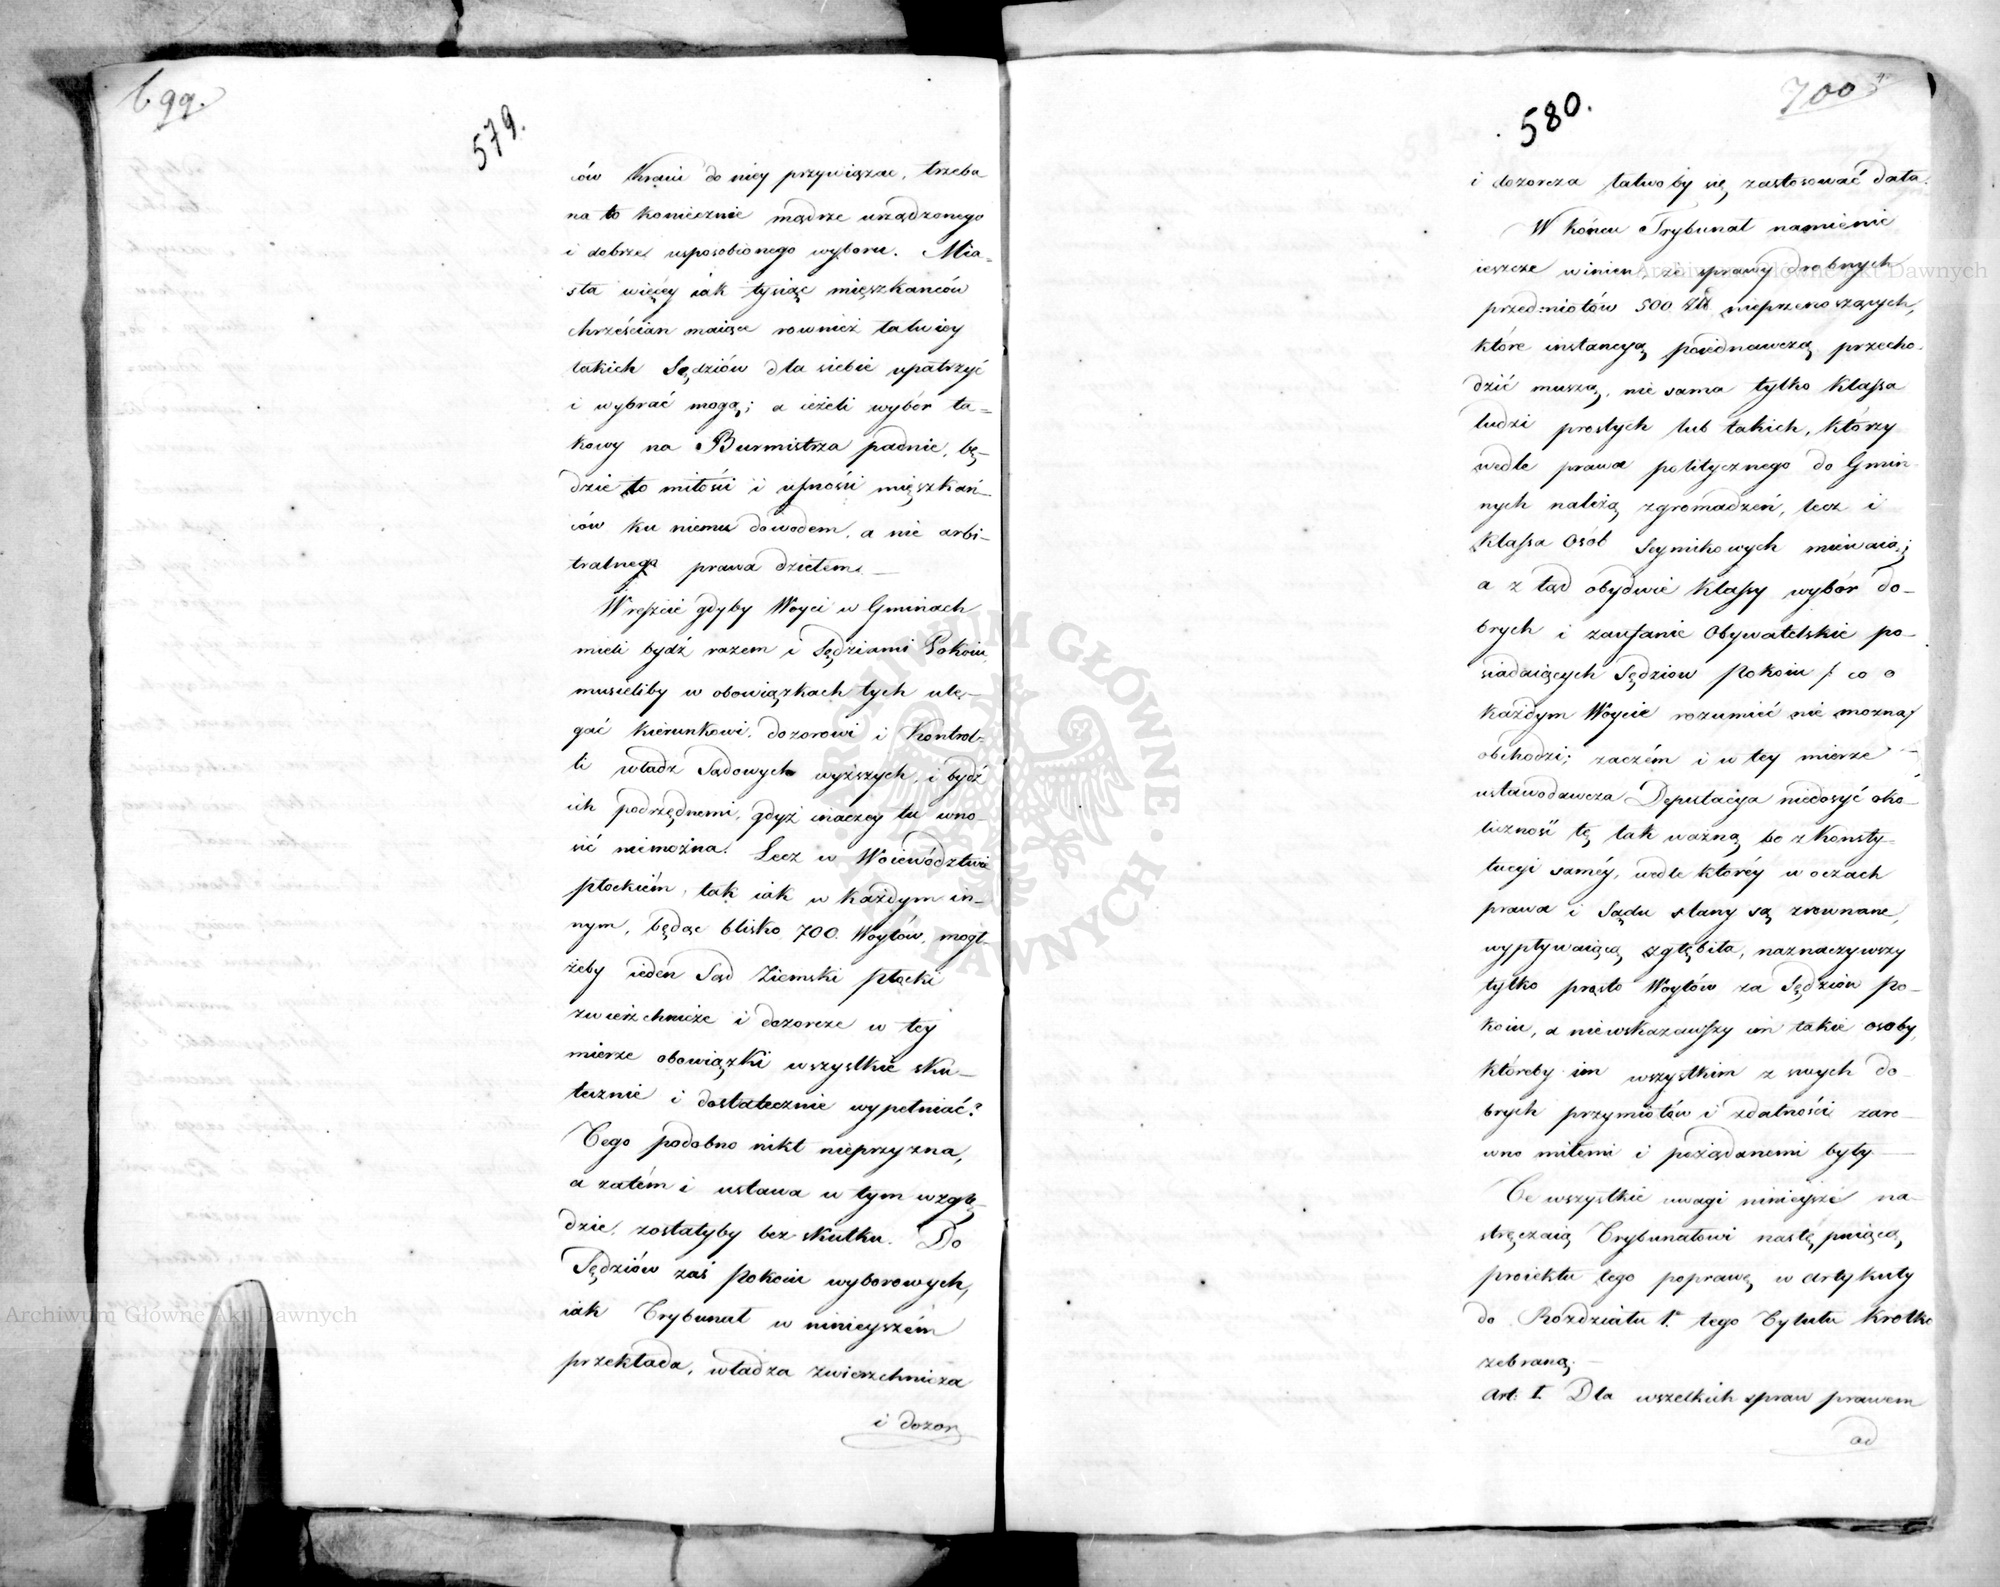 699.
579.
ców Kraiu do niey przywiązać, trzeba
na to koniecznie mądrze urządzonego
i dobrze usposobionego wyboru. Mia-
sta więcey iak tysiąc mięszkańców
chrześcian maiące rownież łatwiey
takich Sędziów dla siebie upatrzyć
i wybrać mogą; a ieżeli wybór ta-
kowy na Burmistrza padnie, bę-
dzie to miłości i ufności mięszkań-
ców ku niemu dowodem, a nie arbi-
tralnego prawa dziełem. —
Wreszcie gdyby Woyci w Gminach
mieli bydź razem i Sędziami Pokoiu,
musieliby w obowiązkach tych ule-
gać kierunkowi, dozorowi i Kontrol-
li władz Sądowych wyższych, i bydź
ich podrzędnemi, gdyż inaczey tu wno-
sić niemożna. Lecz w Woiewództwie
płockiém, tak iak w każdym in-
nym, będąc blisko 700. Woytów, mogł-
żeby ieden Sąd Ziemski płocki
zwierzchnicze i dozorcze w tey
mierze obowiązki wszystkie sku-
tecznie i dostatecznie wypełniać?
Tego podobno nikt nieprzyzna,
a zatém i ustawa w tym wzglę-
dzie, zostałyby bez skutku. Do
Sędziów zaś Pokoiu wyborowych,
iak Trybunał w ninieyszém
przekłada, władza zwierzchnicza
i dozor
700
580.
i dozorcza łatwoby się zastosować dała.
W końcu Trybunał namienić
ieszcze winien że sprawy drobnych
przedmiotów 500 Złt nieprzenoszących,
które instancyą poiednawczą przecho-
dzić muszą, nie sama tylko Klassa
ludzi prostych lub takich, którzy
wedle prawa politycznego do Gmin-
nych należą zgromadzeń, lecz i
Klassa Osób Seymikowych miewaią;
a z tąd obydwie Klassy wybór do-
brych i zaufanie Obywatelskie po-
siadaiących Sędziow Pokoiu /: co o
każdym Woycie rozumieć nie można/
obchodzi; zaczém i w tey mierze —
ustawodawcza Deputacya niedosyć oko-
liczność tę tak ważną bo z Konsty-
tucyi saméy, wedle któréy w oczach
prawa i Sądu stany są zrownane,
wypływaiącą zgłębiła, naznaczywszy
tylko prosto Woytów za Sędziow Po-
koiu, a niewskazawszy im takie osoby,
któreby im wszystkim z swych do-
brych przymiotów i zdatności zaro-
wno miłemi i pożądanemi były —
Te wszystkie uwagi ninieysze na-
stręczaią Trybunałowi następuiącą
proiektu tego poprawę w artykuły
do Rozdziału 1. tego Tytułu krotko
zebraną. —
Art: 1. Dla wszelkich spraw prawem
od
Archiwum Główne Akt Dawnych
Archiwum Główne Akt Dawnych
ARCHIWUM GŁÓWNE AKT DAWNYCH